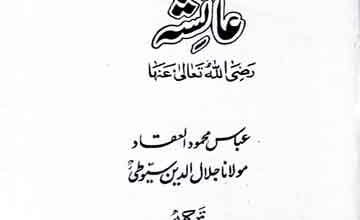 عائشہ
رَضِیَ اللہُ تَعَالیٰ عَنْہَا
عباس محمود العقاد
مولانا جلال الدین سیوطیؒ
ترجمہ